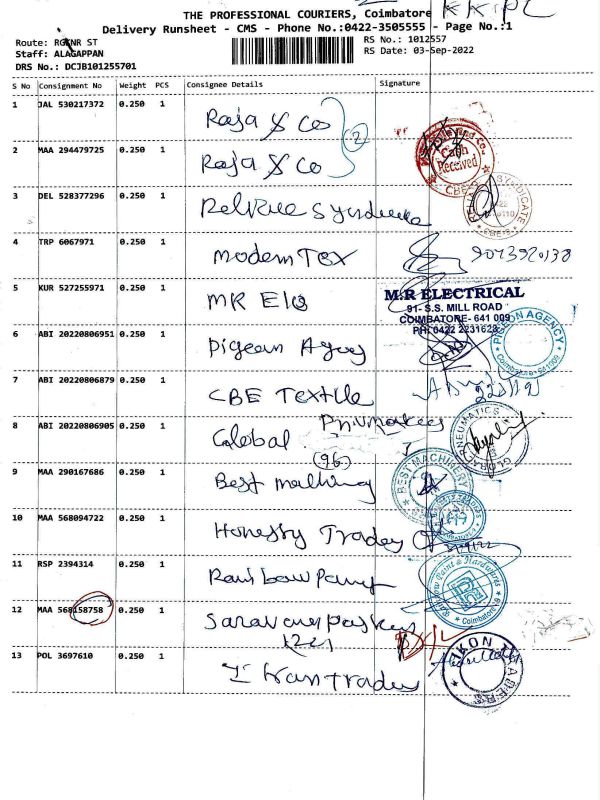 THE PROFESSIONAL COURIERS, Coimbatore KK PL
Delivery Runsheet - CMS - Phone No.:0422-3505555 - Page No.:1
Route: RGKNR ST
RS No.: 1012557
Staff: ALAGAPPAN
RS Date: 03-Sep-2022
DRS No.: DCJB101255701
S No Consignment No Weight PCS Consignee Details Signature
1 JAL 530217372 0.250 1 Raja & Co
(2)
2 MAA 294479725 0.250 1 Raja & Co
Cash Received CBE
3 DEL 528377296 0.250 1
SYNDICATE CBE
4 TRP 6067971 0.250 1 Modern Tex
5 KUR 527255971 0.250 1 MR Ele
M.R ELECTRICAL
91- S.S. MILL ROAD
COIMBATORE- 641 009
PH: 0422 2231623
6 ABI 20220806951 0.250 1 Pigeon
PIGEON AGENCY Coimbatore-641009
7 ABI 20220806879 0.250 1 CBE Textile
8 ABI 20220806905 0.250 1 Global
PNEUMATICS
(96)
9 MAA 290167686 0.250 1 Best
BEST MACHINERY
10 MAA 568094722 0.250 1 Honesty Trades
11 RSP 2394314 0.250 1 Rainbow
Rainbow Paint & Hardwares Coimbatore
12 MAA 568158758 0.250 1
13 POL 3697610 0.250 1 Trades
IKON TRADERS